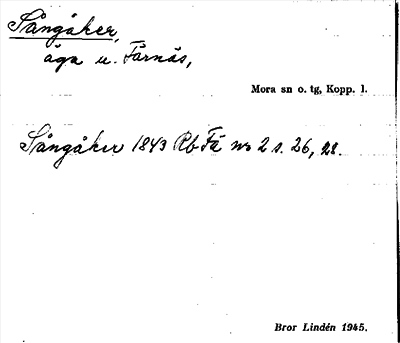 Sångåker,
äga u. Färnäs,
Mora sn o. tg, Kopp. l.
Sångåker 1843 Rb Fä no 2 s. 26, 28.
Bror Lindén 1945.